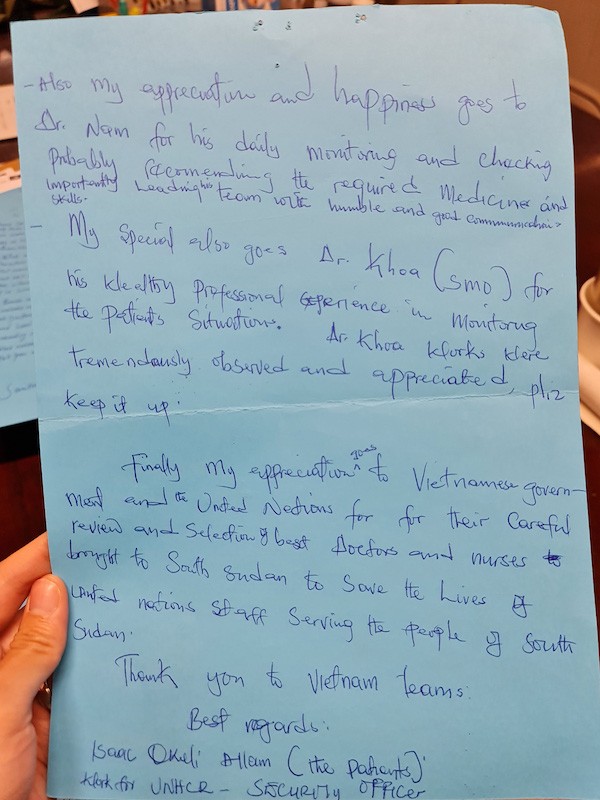 - Also my appreciation and happiness goes to
Dr. Nam for his daily monitoring and checking
Probably recomending the required Medicine and
importantly Leading his team with humble and good communication
skills.
- My Special also goes Dr. Khoa (SMO) for
his klealthy Professional experience in Monitoring
the Patients Situation. Dr Khoa klorks klere
tremendously observed and appreciated, plz
keep it up.
Finally my appreciation goes to Vietnamese govern-
ment and the United Nations for for their Careful
review and Selection of best Doctors and nurses
brought to South Sudan to Save the Lives of
United nations Staff Serving the people of South
Sudan.
Thank you to Vietnam teams.
Best regards.
Isaac Okuli Allam (the patients)
klork for UNHCR - SECURITY OFFICER